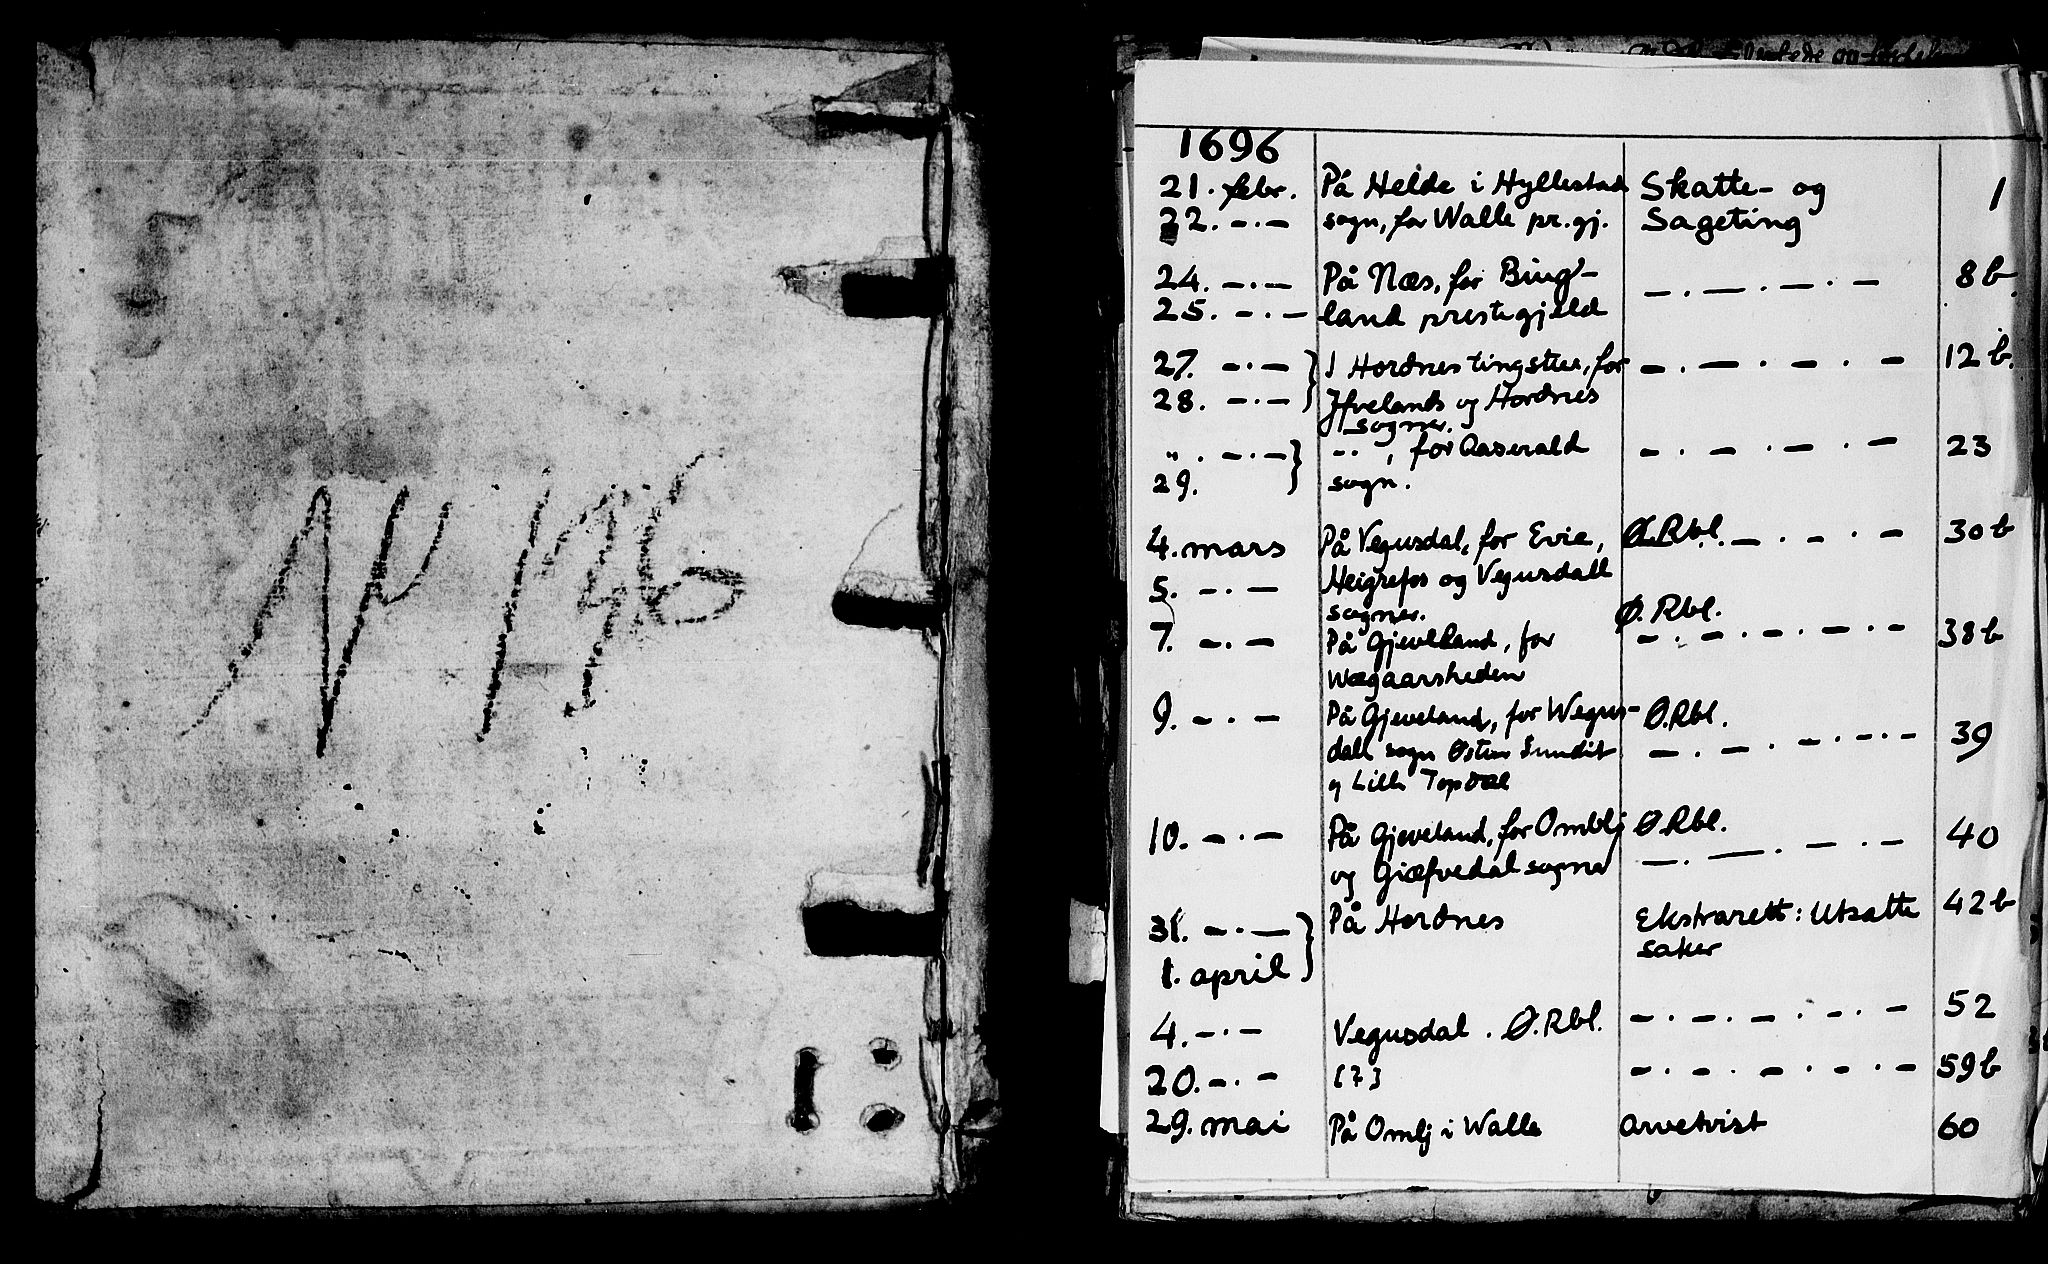 No 196
1696
21. febr. På Helde i Hyllestad Skatte- og 1
22. -.- sogn, for Walle pr.gj. Sageting
24. -.- På Næs, for Bing- -.-.-.- 8b.
25. -.- land prestegjeld
27. -.- } I Hordnes tingstue, for -.-.-.- 12b.
28. -.- Ifvelands og Hordnes
sogner.
". -.- } -. , for Aaserald -.-.-.- 23
29. sogn.
4. mars På Vegusdal, for Evie, Ø.Rbl. -.-.- 30b
5. -.- Heigrefos og Vegusdall
sogner. Ø.Rbl.
7. -.- På Gjeveland, for -.-.-.-.- 38b
Wægaarsheden
9. -.- På Gjeveland, for Wegus- Ø.Rbl.
dall sogn Østen Sundit -.-.-.-.- 39
og Lille Topdal
10. -.- På Gjeveland, for Omblj Ø.Rbl. 40
og Giæfvedal sogner -.-.-.-
31. -.- } På Hordnes Ekstrarett: Utsatte 42b
1. april saker
4. -.- Vegusdal. Ø.Rbl. -.-.-.-.- 52
20. -.- (?) -.-.-.-.- 59b
29. mai På Omlj i Walle Arvetvist 60